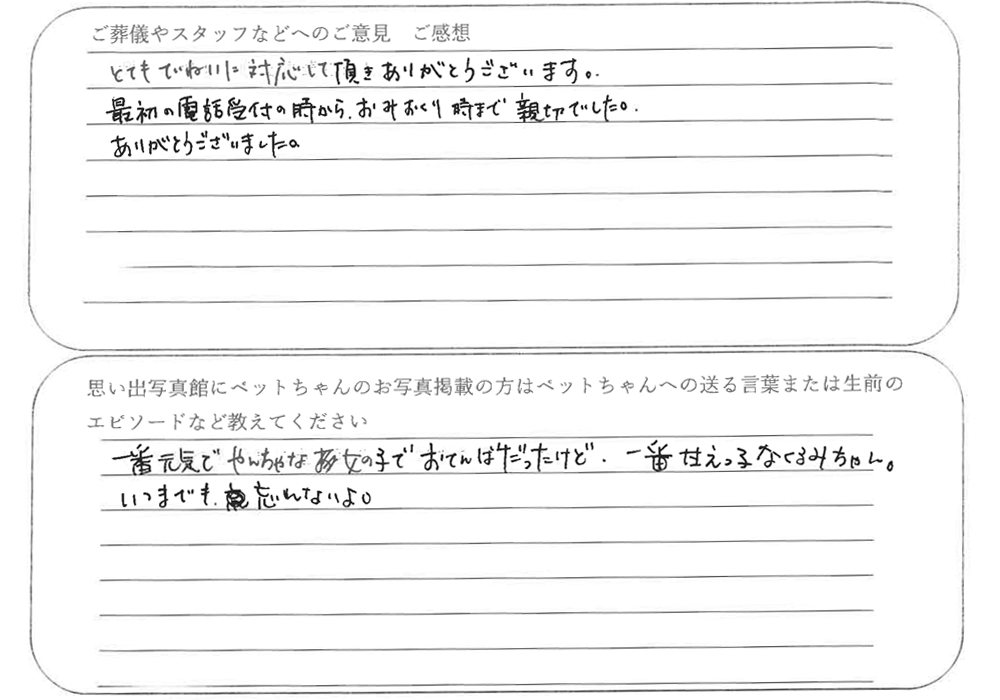 ご葬儀やスタッフなどへのご意見 ご感想
とてもでねいに対応して頂きありがとうございます。
最初の電話受付の時から、おみおくり時まで親切でした。
ありがとうございました。
思い出写真館にペットちゃんのお写真掲載の方はペットちゃんへの送る言葉または生前の
エピソードなど教えてください
一番元気でやんちゃな女の子でおてんばだったけど、一番甘えっ子なくるみちゃん。
いつまでも、忘れないよ。